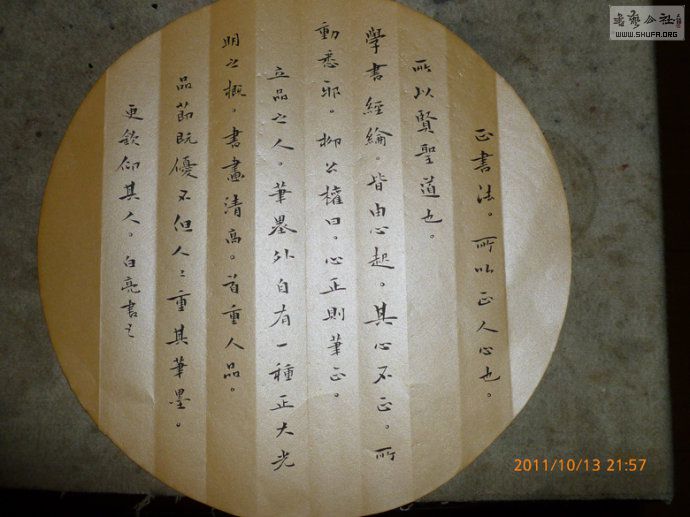 正書法。所以正人心也。
所以賢聖道也。
學書經綸。皆由心起。其心不正。所
動悉邪。柳公權曰。心正則筆正。
立品之人。筆墨外自有一種正大光
明之概。書畫清高。首重人品。
品節既優不但人〻重其筆墨。
更欽仰其人。白亮書之
書藝公社
WWW.SHUFA.ORG
2011/10/13 21:57